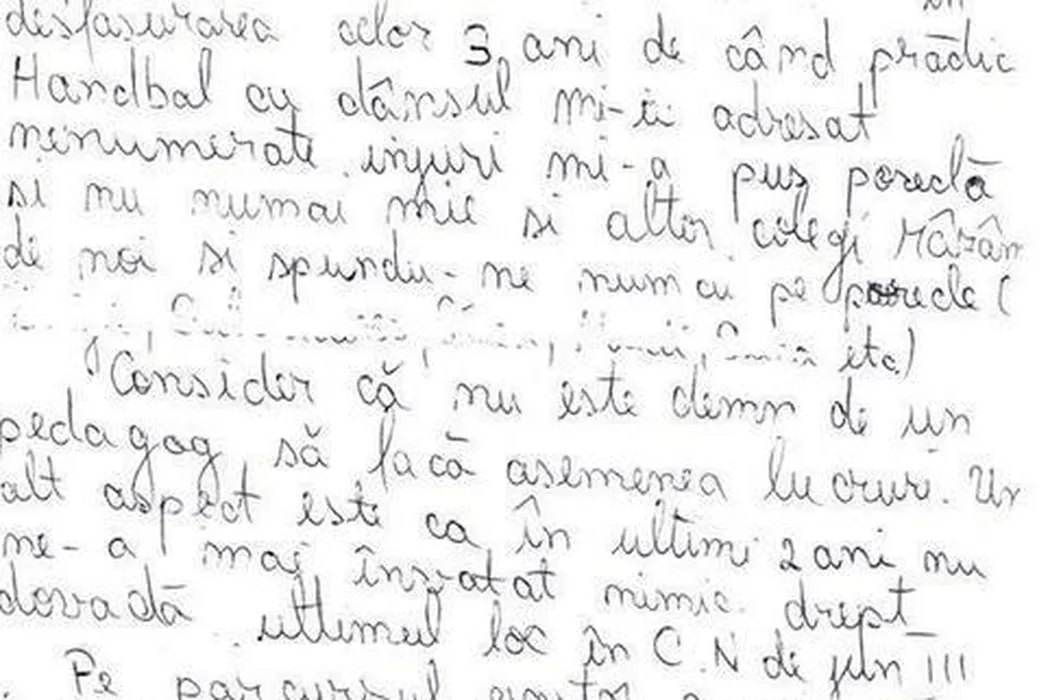 în
desfasurarea celor 3 ani de când prâdic
Handbal cu dânsul mi-a adresat
nenumerate injuri mi-a pus poreclā
si nu numai mie si altor colegi râzân
de noi si spundu-ne numai pe porecle (
etc)
Consider că nu este demn de un
pedagog să facā asemenea lucruri. Un
alt aspect este ca în ultimi 2 ani nu
ne-a mai învatat nimic drept
dovadā ultimul loc în C.N de jun III
Pe parcursul